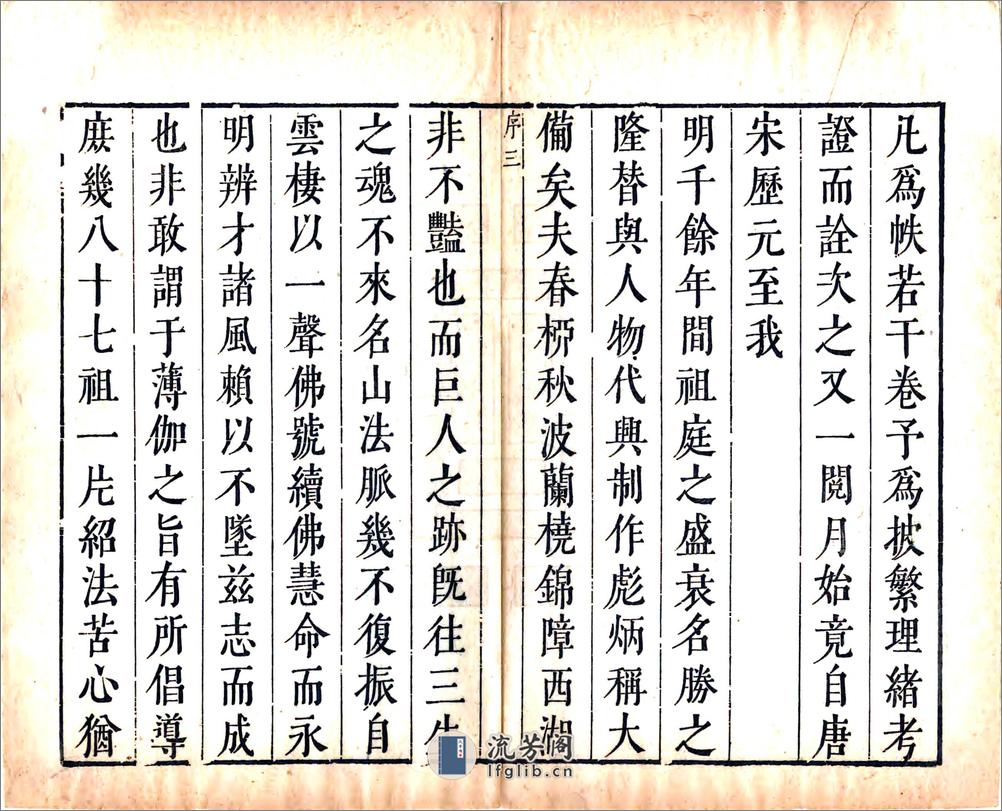 凡爲帙若干卷予爲披繁理緒考
證而詮次之又一閱月始竟自唐
宋歷元至我
明千餘年間祖庭之盛衰名勝之
隆替與人物代興制作彪炳稱大
備矣夫春桺秋波蘭橈錦障西湖
序三
非不豔也而巨人之跡旣往三生
之魂不來名山法脈幾不復振自
雲棲以一聲佛號續佛慧命而永
明辨才諸風賴以不墜茲志而成
也非敢謂于薄伽之旨有所倡導
庶幾八十七祖一片紹法苦心猶
流芳阁
lfglib.cn